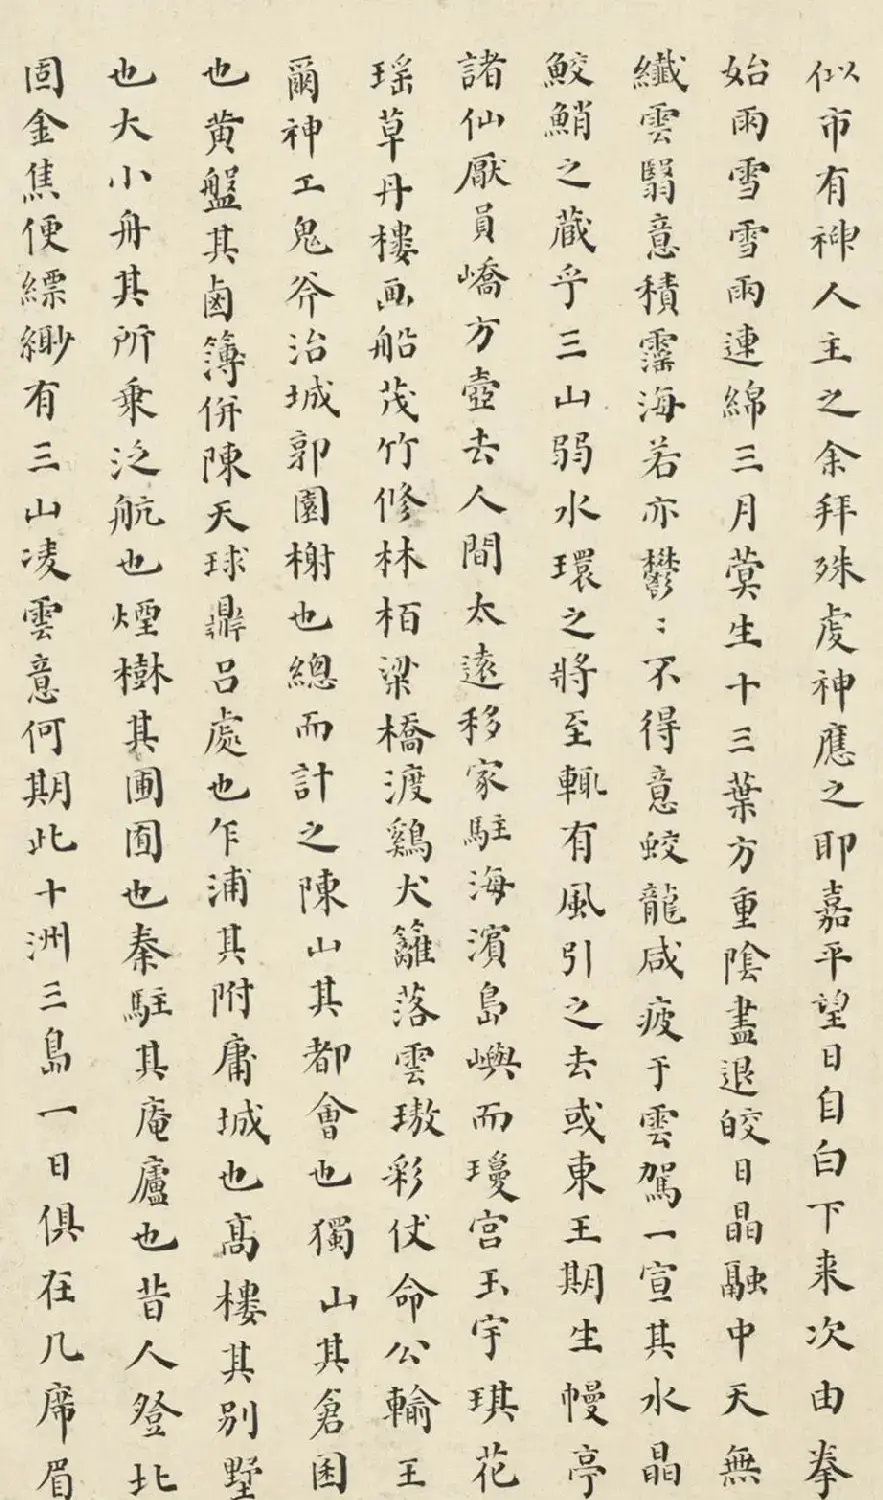 似市有神人主之余拜殊虔神應之耶嘉平望日自白下来次由拳
始雨雪雪雨連綿三月蓂生十三葉方重陰盡退皎日晶融中天無
纖雲翳意積靄海若亦鬱:不得意蛟龍咸疲于雲駕一宣其水晶
鮫鮹之蔵乎三山弱水環之將至輒有風引之去或東王期生幔亭
諸仙厭員嶠方壺去人間太遠移家駐海濱島嶼而瓊宮玉宇琪花
瑶草丹樓畫船茂竹修林栢梁橋渡鷄犬籬落雲璈彩仗命公輸王
爾神工鬼斧治城郭園榭也總而計之陳山其都會也獨山其倉囷
也黄盤其鹵簿併陳天球鼎呂處也乍浦其附庸城也髙樓其别墅
也大小舟其所乗泛航也煙樹其圃囿也秦駐其庵廬也昔人登北
固金焦便縹緲有三山凌雲意何期此十洲三島一日俱在几席眉